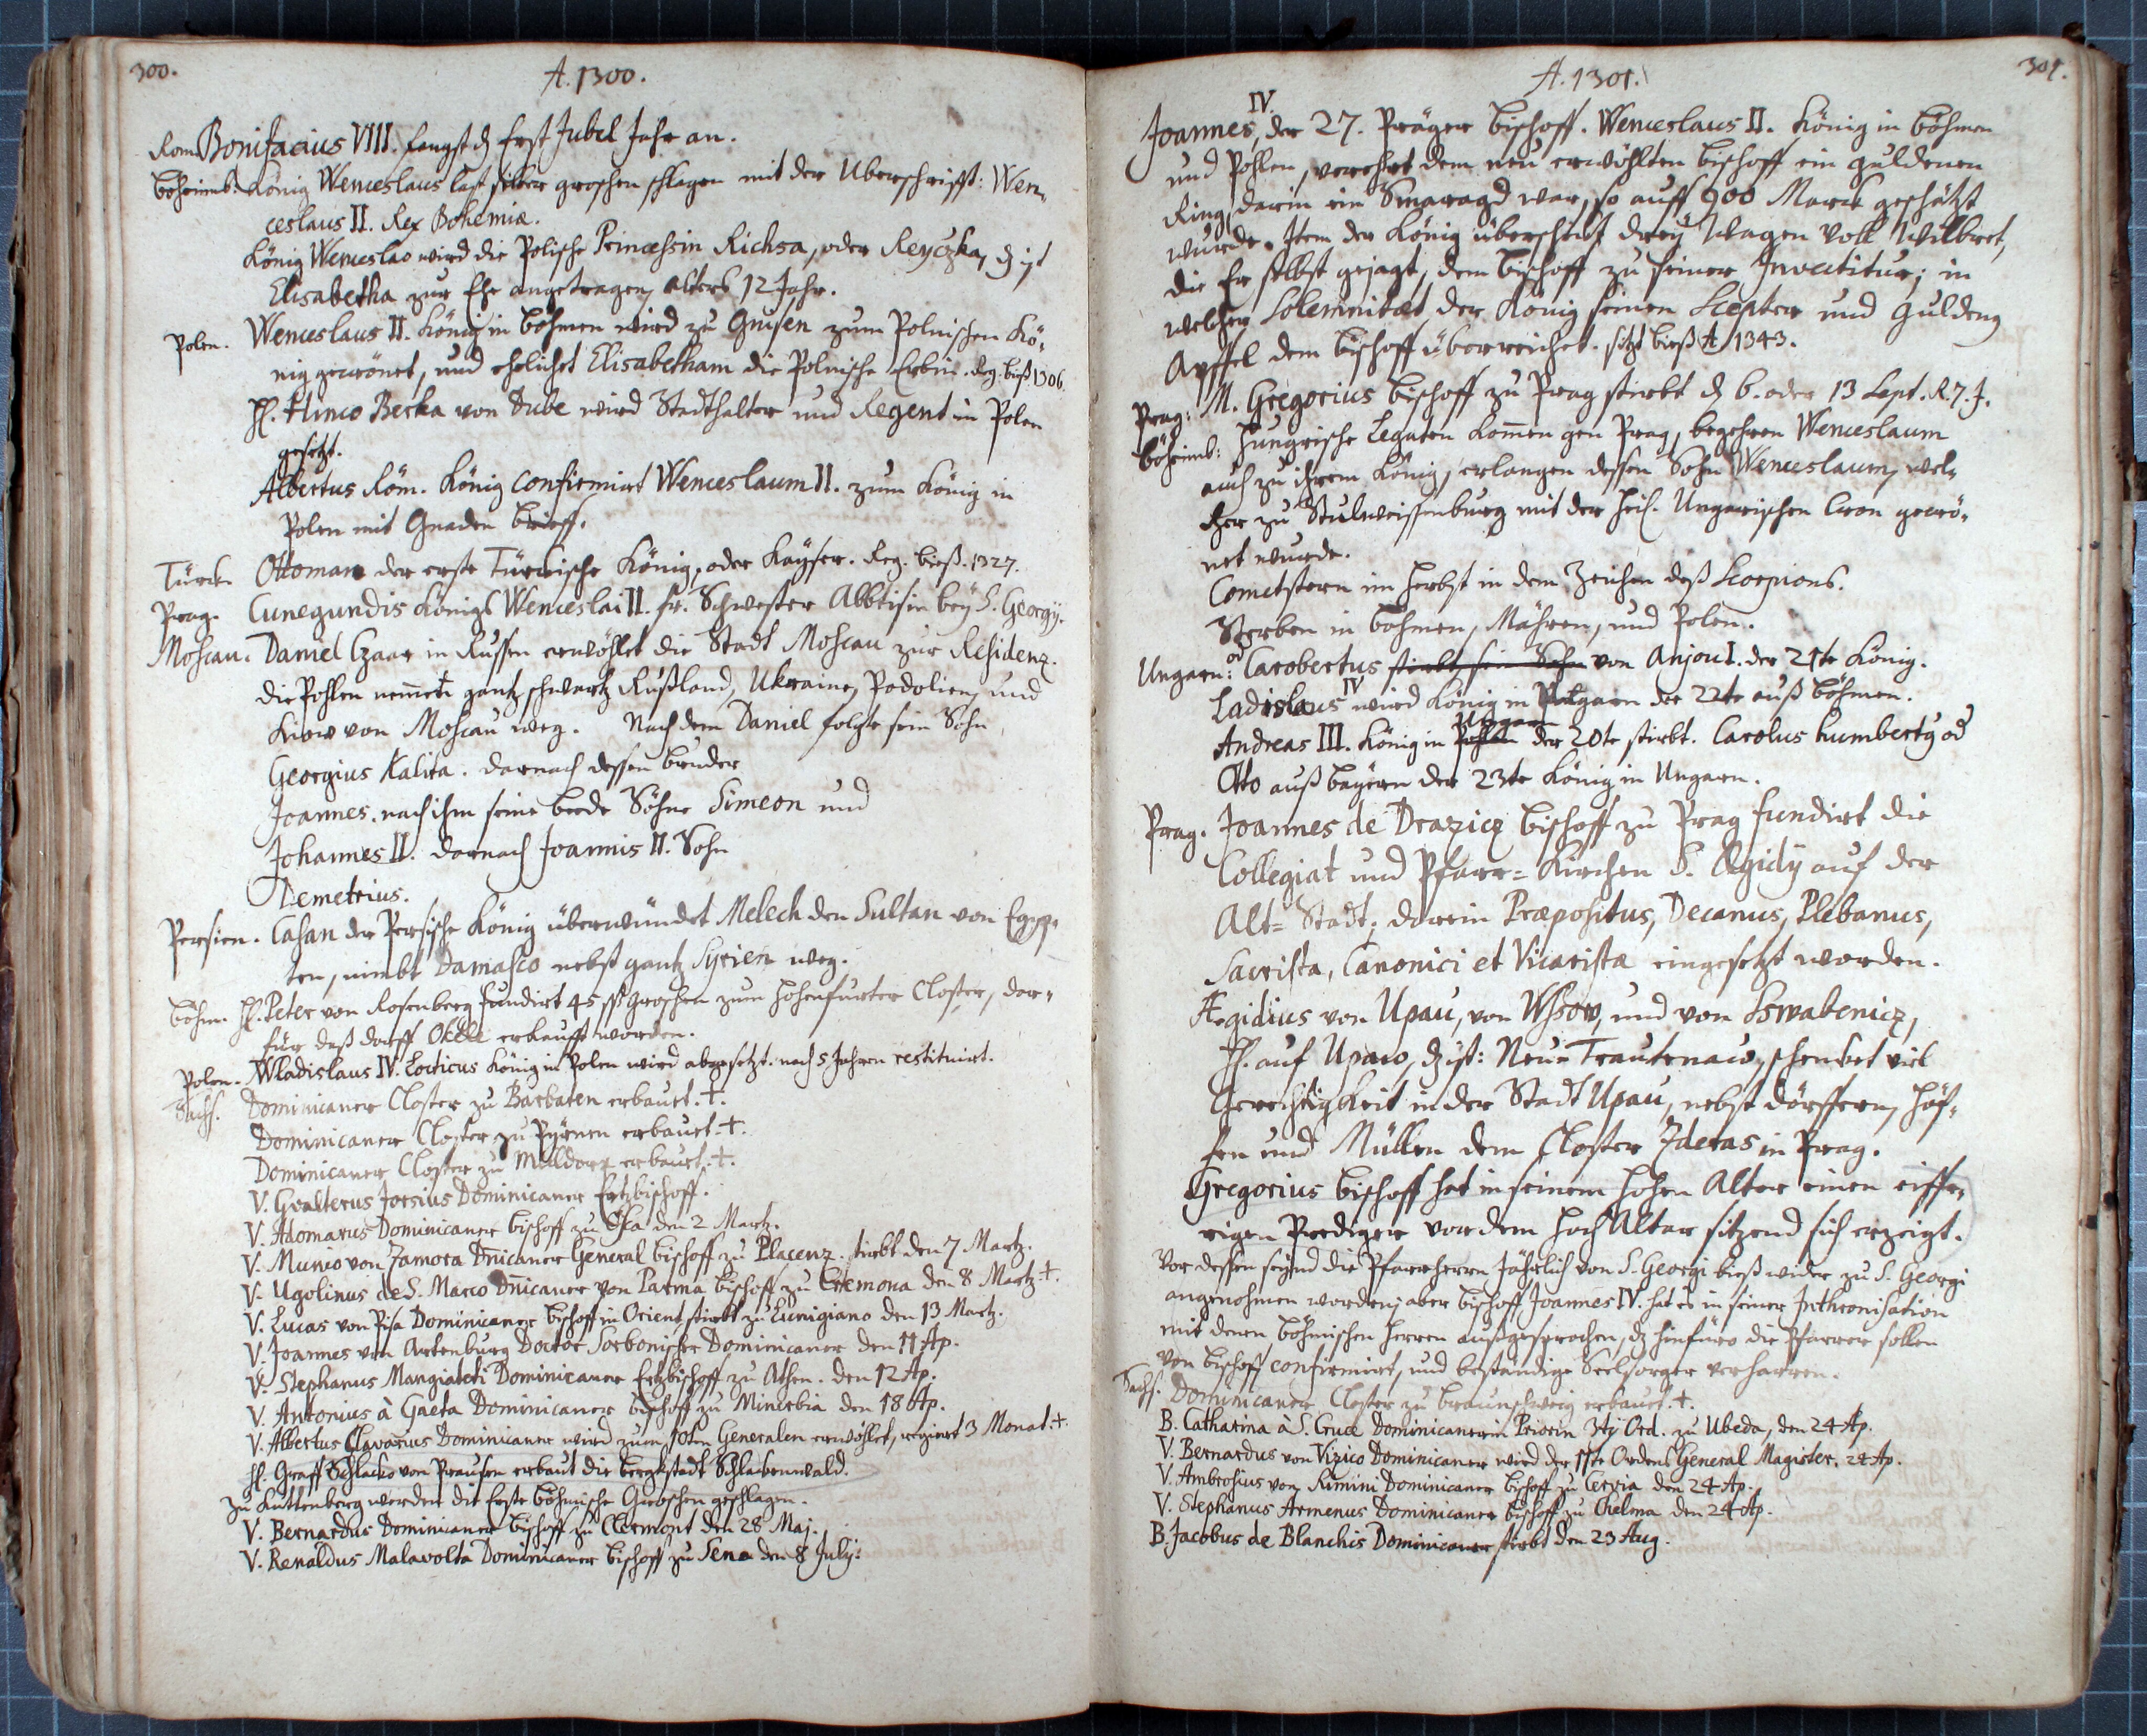 300.
A. 1300.
Rom. Bonifacius VIII. fangt dz Erst Jubel Jahr an.
Böheimb. König Wenceslaus last silber groschen schlagen mit der Uberschrifft: Wen-
ceslaus II. Rex Bohemiæ.
König Wenceslao wird die Polische Princessin Richsa, oder Reyczka, dz ist
Elisabetha zur Ehe angetragen, alters 12 Jahr.
Polen. Wenceslaus II. König in Böhmen wird zu Gnisen zum Polnischen Kö-
nig gecrönet, und ehelichet Elisabetham die Polnische Erbin. Reg. biß 1306.
H. Hinco Berka von Dube wird Stadthalter und Regent in Polen
gesetzt.
Albertus Röm. König confirmirt Wenceslaum II. zum König in
Polen mit Gnaden brieff.
Türck. Ottoman der erste Türckische König, oder Kayser. Reg. bieß. 1327.
Prag. Cunegundis Königs Wenceslai II. fr. Schwester Abbtisin bey S. Georgij.
Moscau. Daniel Czaar in Russen erwöhlet die Stadt Moscau zur Residenz.
die Pohlen nemmeten gantz schwartz Rußland, Ukraine, Podolien, und
Kiow von Moscau weg. Nach dem Daniel folgte sein Sohn
Georgius Kalita. darnach dessen bruder
Joannes. nach ihm seine beede Söhne Simeon und
Johannes II. darnach Joannis II. Sohn
Demetrius.
Persien. Casan der Persische König überwündet Melech den Sultan von Egyp-
ten, nimbt Damasco nebst gantz Syrien weg.
Böhm. H. Peter von Rosenberg fundirt 45 ß groschen zum Hohenfurter Closter, dar-
für deß dorff erkaufft worden.
Polen. Wladislaus IV. Locticus König in Polen wird abgesetzt. nach 5 Jahren restituirt.
Sachs. Dominicaner Closter zu Barbaten erbauet. †.
Dominicaner Closter zu Pyrnen erbauet. †.
Dominicaner Closter zu Mulldorf erbauet. †.
V. Gvalterus Jorsius Dominicaner Ertzbischoff.
V. Adomarus Dominicaner bischoff zu den 2 Martz.
V. Munio von Zamora Dnicaner General bischoff zu Placenz. stirbt den 7 Martz.
V. Ugolinus de S. Marco Dnicaner von Parma bischoff zu Cremona den 8 Martz †.
V. Lucas von Pisa Dominicaner bischoff in Orient stirbt zu Lunigiano den 13 Martz.
V. Joannes von Artenburg Doctor Sorbonischer Dominicaner den 11 Ap.
V. Stephanus Mangiateti Dominicaner Ertzbischoff zu Athen. den 12 Ap.
V. Antonius à Gaeta Dominicaner bischoff zu Minerbia den 18 Ap.
V. Albertus Clavarius Dominicaner wird zum 10ten Generalen erwöhlet, regiert 3 Monat. †.
H. Graff Schlacko von Prausen erbaut die bergkstadt Schlackenwald.
Zu Kuttenberg werden die Erste böhmische Groschen geschlagen.
V. Bernardus Dominicaner bischoff zu Clermont den 28 Maj.
V. Renaldus Malavolta Dominicaner bischoff zu Sena den 8 July.
A. 1301.
301.
IV.
Joannes, der 27. Präger bischoff. Wenceslaus II. König in böhmen
und Pohlen, verehrt dem neu erwöhlten bischoff ein guldenen
Ring, darin ein Smaragd war, so auff 900 Marck geschätzt
wurde. Item der König überschickt dreÿ Wagen voll Wilbret,
die Er selbst gejagt, dem bischoff zu seiner Investitur; in
welcher Solemnitæt der König seinen Scepter und gulden
Apffel dem bischoff überreichet. sitzt bieß A 1343.
Prag: M. Gregorius bischoff zu Prag stirbt dz 6. oder 13 Sept. R. 7. J.
böheimb: Hungrische Legaten kommen gen Prag, begehren Wenceslaum
auch zu ihrem König, erlangen dessen Sohn Wenceslaum, wel-
cher zu Stulweissenburg mit der Heil. Ungarischen Cron gecrö-
net wurde.
Cometstern im Herbst in dem Zeichen deß Scorpions.
Sterben in böhmen, Mähren, und Polen.
Ungarn: od Carobertus stirbt, sein Sohn von Anjou I. der 21te König.
Ladislaus IV wird König in Ungarn der 22te auß böhmen.
Andreas III. König in Pohlen Ungarn der 20te stirbt. Carolus humbertg od
Otto auß bayern der 23te König in Ungarn.
Prag. Joannes de Drazicz bischoff zu Prag fundirt die
Collegiat und Pfarr-Kirchen S. Ægidij auf der
Alt-Stadt; darein Præpositus, Decanus, Plebanus,
Sacrista, Canonici et Vicaristæ eingesetzt worden.
Ægidius von Upau, von Wssow, und von Sswabenicz,
H. auf Upaw, dz ist: Neu-Trautenaw, schencket viel
Gerechtigkeit in der Stadt Upau, nebst dörffern, Höf-
fen und Müllen dem Closter Zderas in Prag.
Gregorius bischoff hat in seinem hohen Alter einen eiffe-
rigen Prediger vor dem hoch Altar sitzend sich erzeigt.
Vor dessen seynd die Pfarrherrn Jährlich von S. Georgi bieß wider zu S. Georgi
angenohmen worden; aber bischoff Joannes IV. hat es in seiner Inthronisation
mit denen böhmischen Herren außgesprochen, dz hinfüro die Pfarrer sollen
von bischoff confirmirt, und beständige Seelsorger verharren.
Sachs. Dominicaner Closter zu braunschweig erbauet. †.
B. Catharina à S. Cruce Dominicanerin Priorin 3tij Ord. zu Ubeda, den 24 Ap.
V. Bernardus von Vizico Dominicaner wird der 11te Ordens General Magister. 24 Ap.
V. Ambrosius von Rimini Dominicaner bischoff zu Cervia den 24 Ap.
V. Stephanus Armenus Dominicaner bischoff zu Chelma den 24 Ap.
B. Jacobus de Blanchis Dominicaner stirbt den 23 Aug.